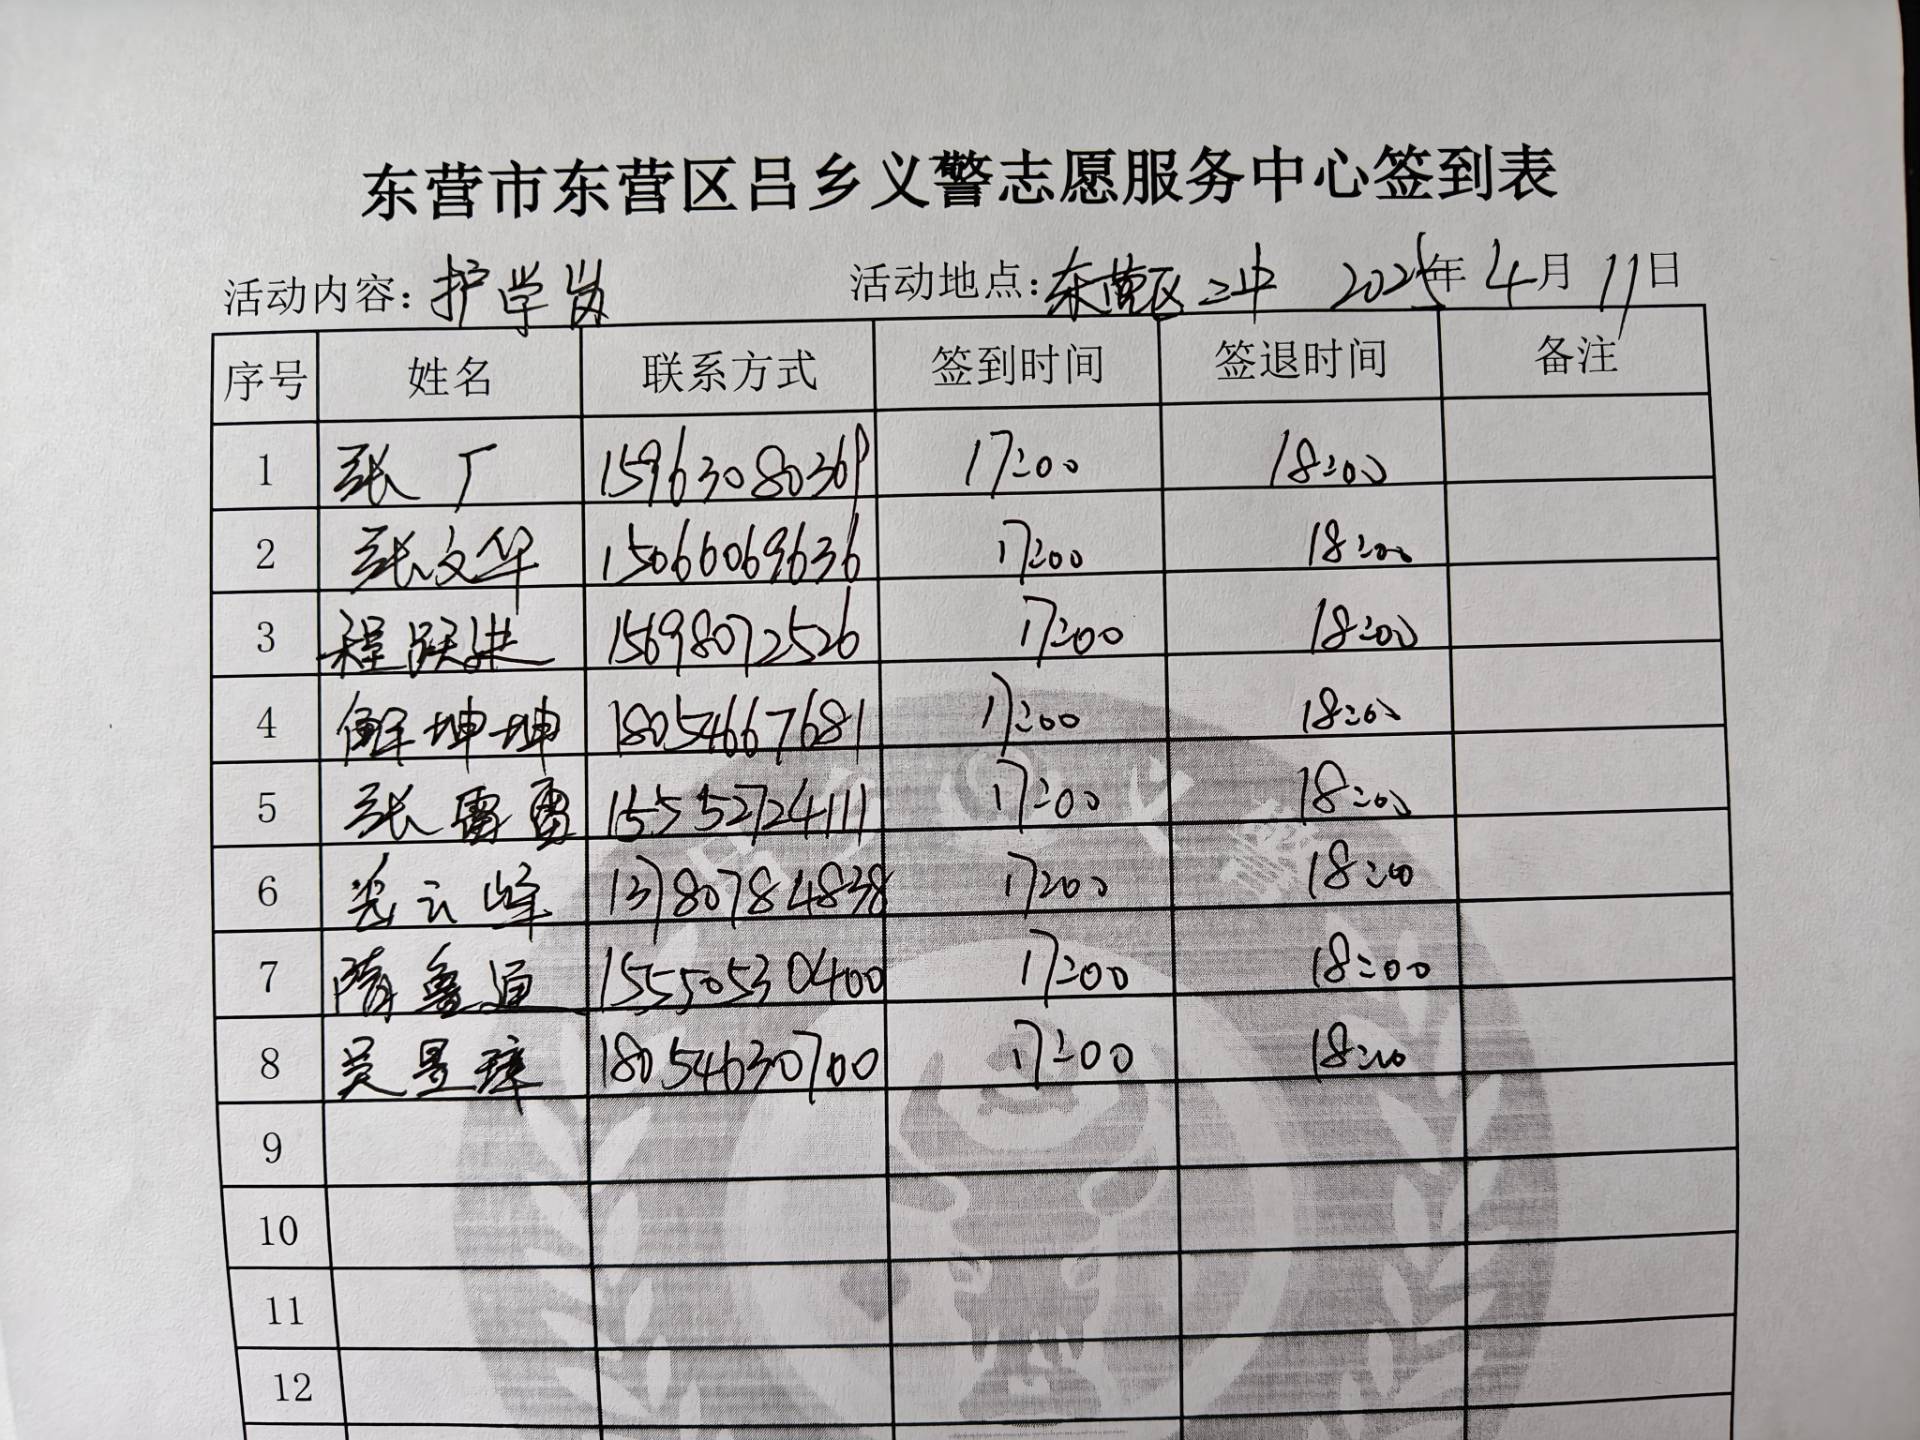 东营市东营区吕乡义警志愿服务中心签到表
活动内容：护学岗 活动地点：东营区二中 2025年4月11日
序号 姓名 联系方式 签到时间 签退时间 备注
1 张厂 15963080369 17:00 18:00
2 张文华 15066069636 17:00 18:00
3 程跃进 15698072526 17:00 18:00
4 解坤坤 18054667681 17:00 18:00
5 张雷雷 15552724111 17:00 18:00
6 尧云峰 13780784838 17:00 18:00
7 隋鲁通 15550530400 17:00 18:00
8 吴昱璋 18054630700 17:00 18:00
9
10
11
12